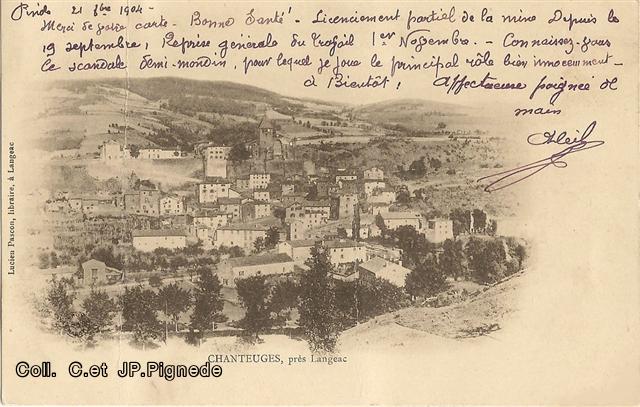 21 8bre 1904 -
Merci de votre carte - Bonne Santé! - Licenciement partiel de la mine Depuis le
19 septembre, Reprise générale du Travail 1er Novembre. Connaissez-vous
Le scandale demi-mondin, pour lequel je joue le principal rôle bien innocemment -
à Bientôt, Affectueuse poignée de
main
Lucien Pascon, libraire, à Langeac
CHANTEUGES, près Langeac
Coll. C.et JP.Pignede